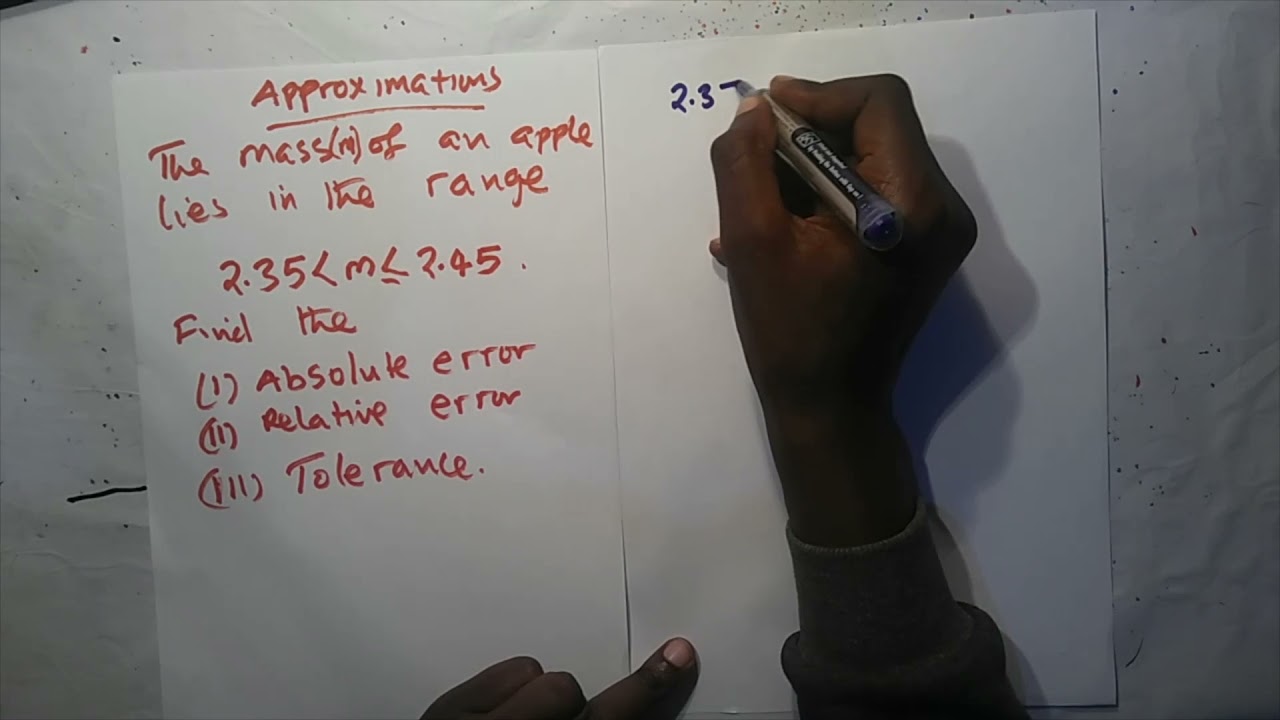 Approximations
The mass(m) of an apple
lies in the range
2.35 < m ≤ 2.45 .
Find the
(I) Absolute error
(II) Relative error
(III) Tolerance.
2.3